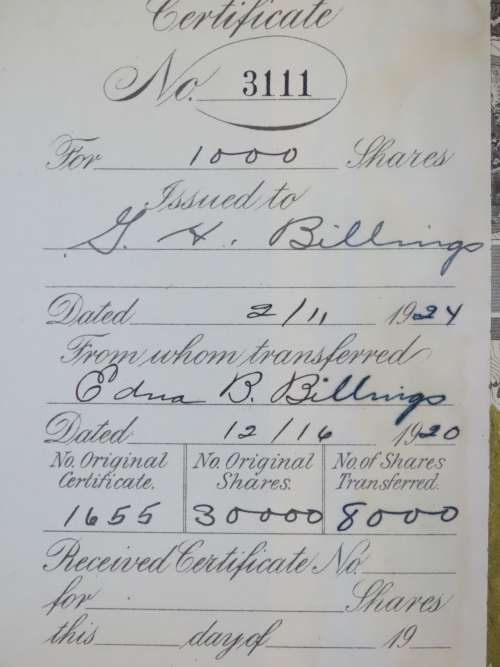 Certificate
No. 3111
For 1000 Shares
Issued to
G. H. Billings
Dated 2/11 1924
From whom transferred
Edna B. Billings
Dated 12/16 1920
No. Original Certificate. No. Original Shares. No. of Shares Transferred.
1655 30000 8000
Received Certificate No.
for Shares
this day of 19